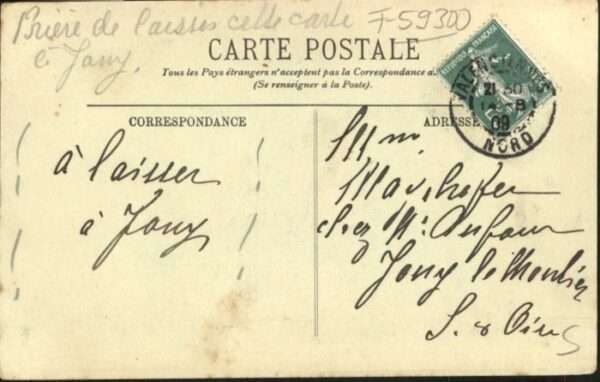 Prière de laisser cette carte F-59300
à Jouy.
CARTE POSTALE
Tous les Pays étrangers n'acceptent pas la Correspondance a
(Se renseigner à la Poste).
CORRESPONDANCE
à laisser
à Jouy
ADRESSE
Mme
chez Mr Dufour
Jouy le Moutier
S. & Oise
VALENCIENNES
21 30
09
NORD